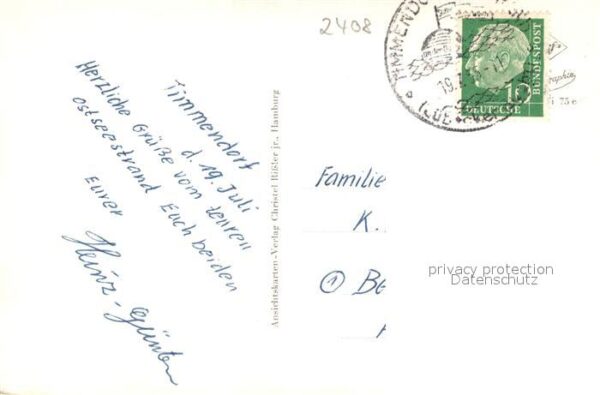 2408
TIMMENDO
19.7.
DEUTSCHE
BUNDESPOST
10
Timmendorf
d. 19. Juli
Herzliche Grüße vom teuren
Ostseestrand Euch beiden
Eurer
Heinz-Günter
Ansichtskarten-Verlag Christel Rißler jr., Hamburg
Familie
K.
① Be
privacy protection
Datenschutz